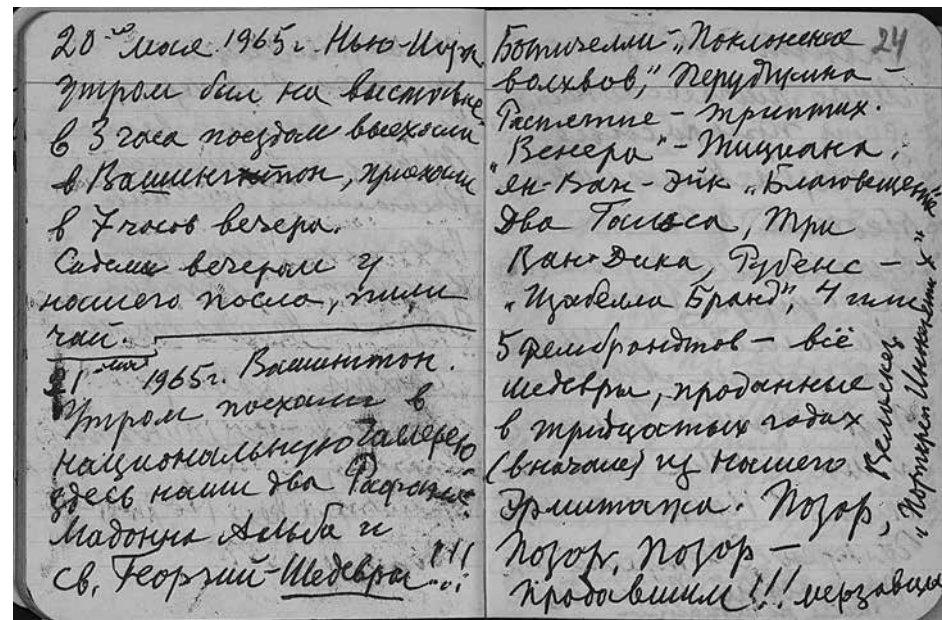 20го мая 1965г. Нью-Иорк
Утром был на выставке
в 3 часа поездом выехали
в Вашингтон, приехали
в 7 часов вечера.
Сидели вечером у
нашего посла, пили
чай.
21 мая 1965г. Вашингтон.
Утром поехали в
национальную галерею
здесь наши два Рафаэля
Мадонна Альба и
св. Георгий - Шедевры!!!
24
Ботичелли - „Поклонение
волхвов", Перуджино -
Распятие - триптих.
„Венера" - Тициана,
Ян-Ван-Эйк „Благовещение"
Два Гальса, Три
Ван-Дика, Рубенс -
„Изабелла Бранд", 4 или
5 Рембрандтов - всё
шедевры, проданные
в тридцатых годах
(вначале) из нашего
Эрмитажа. Позор,
Позор, Позор -
продавшим!!! мерзавцы
Веласкез
„Портрет Иннокентия X"